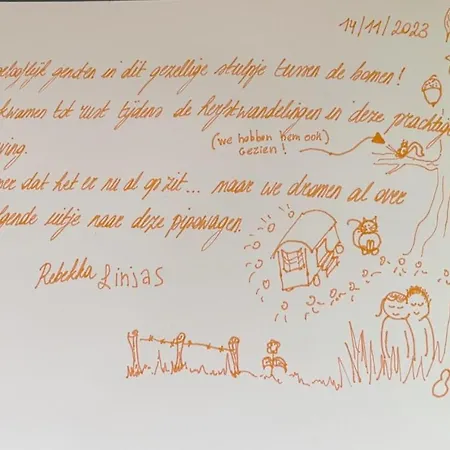 14/11/2023
genoten in dit gezellige stulpje tussen de bomen!
kwamen tot rust tijdens de herfstwandelingen in deze prachtige
(we hebben hem ook)
gezien!
ving.
er dat het er nu al op zit... maar we dromen al over
lgende uitje naar deze pipowagen
Rebekka Linjas